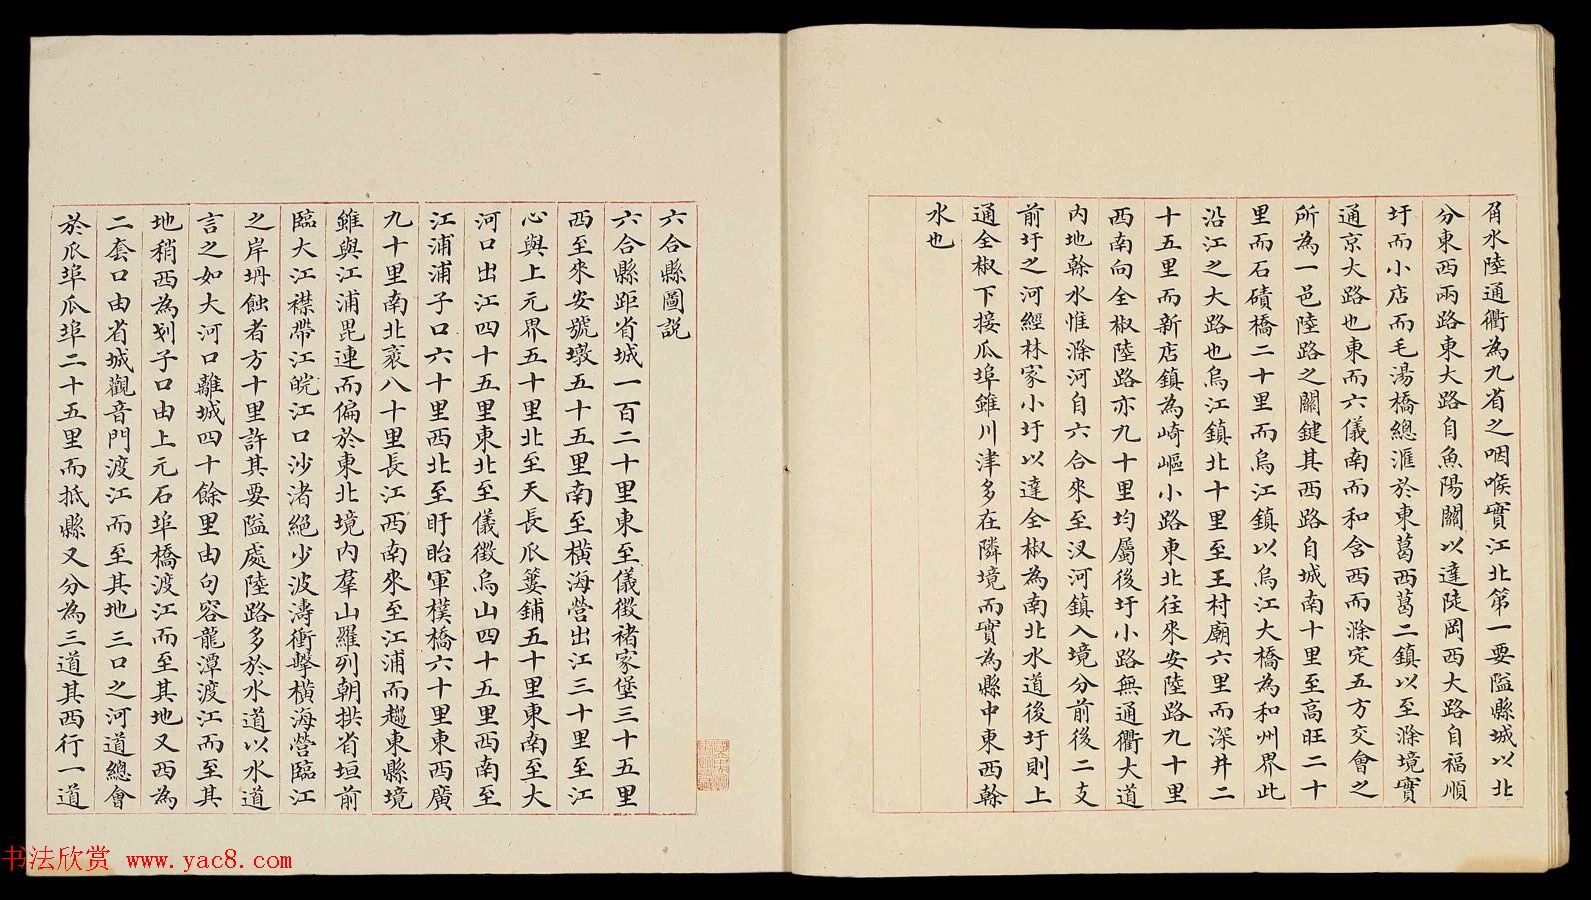 胥水陸通衢為九省之咽喉實江北第一要隘縣城以北
分東西兩路東大路自魚陽關以達陡岡西大路自福順
圩而小店而毛湯橋總滙於東葛西葛二鎮以至滁境實
通京大路也東而六儀南而和含西而滁定五方交會之
所為一邑陸路之關鍵其西路自城南十里至高旺二十
里而石磧橋二十里而烏江鎮以烏江大橋為和州界此
沿江之大路也烏江鎮北十里至王村廟六里而深井二
十五里而新店鎮為崎嶇小路東北往來安陸路九十里
西南向全椒陸路亦九十里均屬後圩小路無通衢大道
內地幹水惟滁河自六合來至汊河鎮入境分前後二支
前圩之河經林家小圩以達全椒為南北水道後圩則上
通全椒下接瓜埠雖川津多在隣境而實為縣中東西幹
水也
六合縣圖説
六合縣距省城一百二十里東至儀徵褚家堡三十五里
西至來安號墩五十五里南至橫海營出江三十里至江
心與上元界五十里北至天長瓜蔞鋪五十里東南至大
河口出江四十五里東北至儀徵烏山四十五里西南至
江浦浦子口六十里西北至盱眙軍樸橋六十里東西廣
九十里南北袤八十里長江西南來至江浦而趨東縣境
雖與江浦毘連而偏於東北境內羣山羅列朝拱省垣前
臨大江襟帶江皖江口沙渚絕少波濤衝擊橫海營臨江
之岸坍蝕者方十里許其要隘處陸路多於水道以水道
言之如大河口離城四十餘里由句容龍潭渡江而至其
地稍西為划子口由上元石埠橋渡江而至其地又西為
二套口由省城觀音門渡江而至其地三口之河道總會
於瓜埠瓜埠二十五里而抵縣又分為三道其西行一道
书法欣赏 www.yac8.com